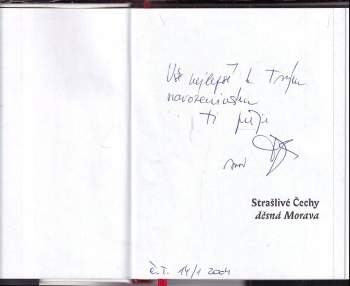 Vše nejlepší k Tvým
narozeninám
ti přeje
Strašlivé Čechy
děsná Morava
Č.T. 14/1 2004